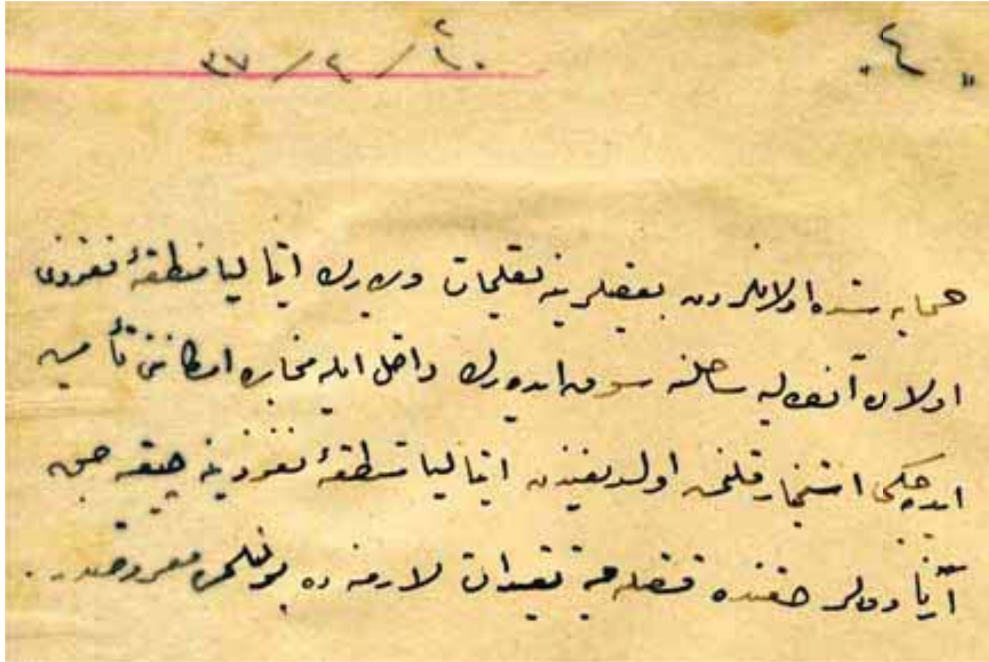 "٤"
٢٠/٢/٣٧
اولانلردن بعضلرينه تعليمات ويره رك ايتاليا منطقهٔ نفوذى
اولان آنطاليه ساحلنه سوق ايده رك داخل ايله مخابره امكاننى تأمين
ايده جكى استخبار قلنمش اولديغندن ايتاليا منطقهٔ نفوذينه چيقه جق
حقنده تقيدات لازمه ده بولنلمسى معروضدر.